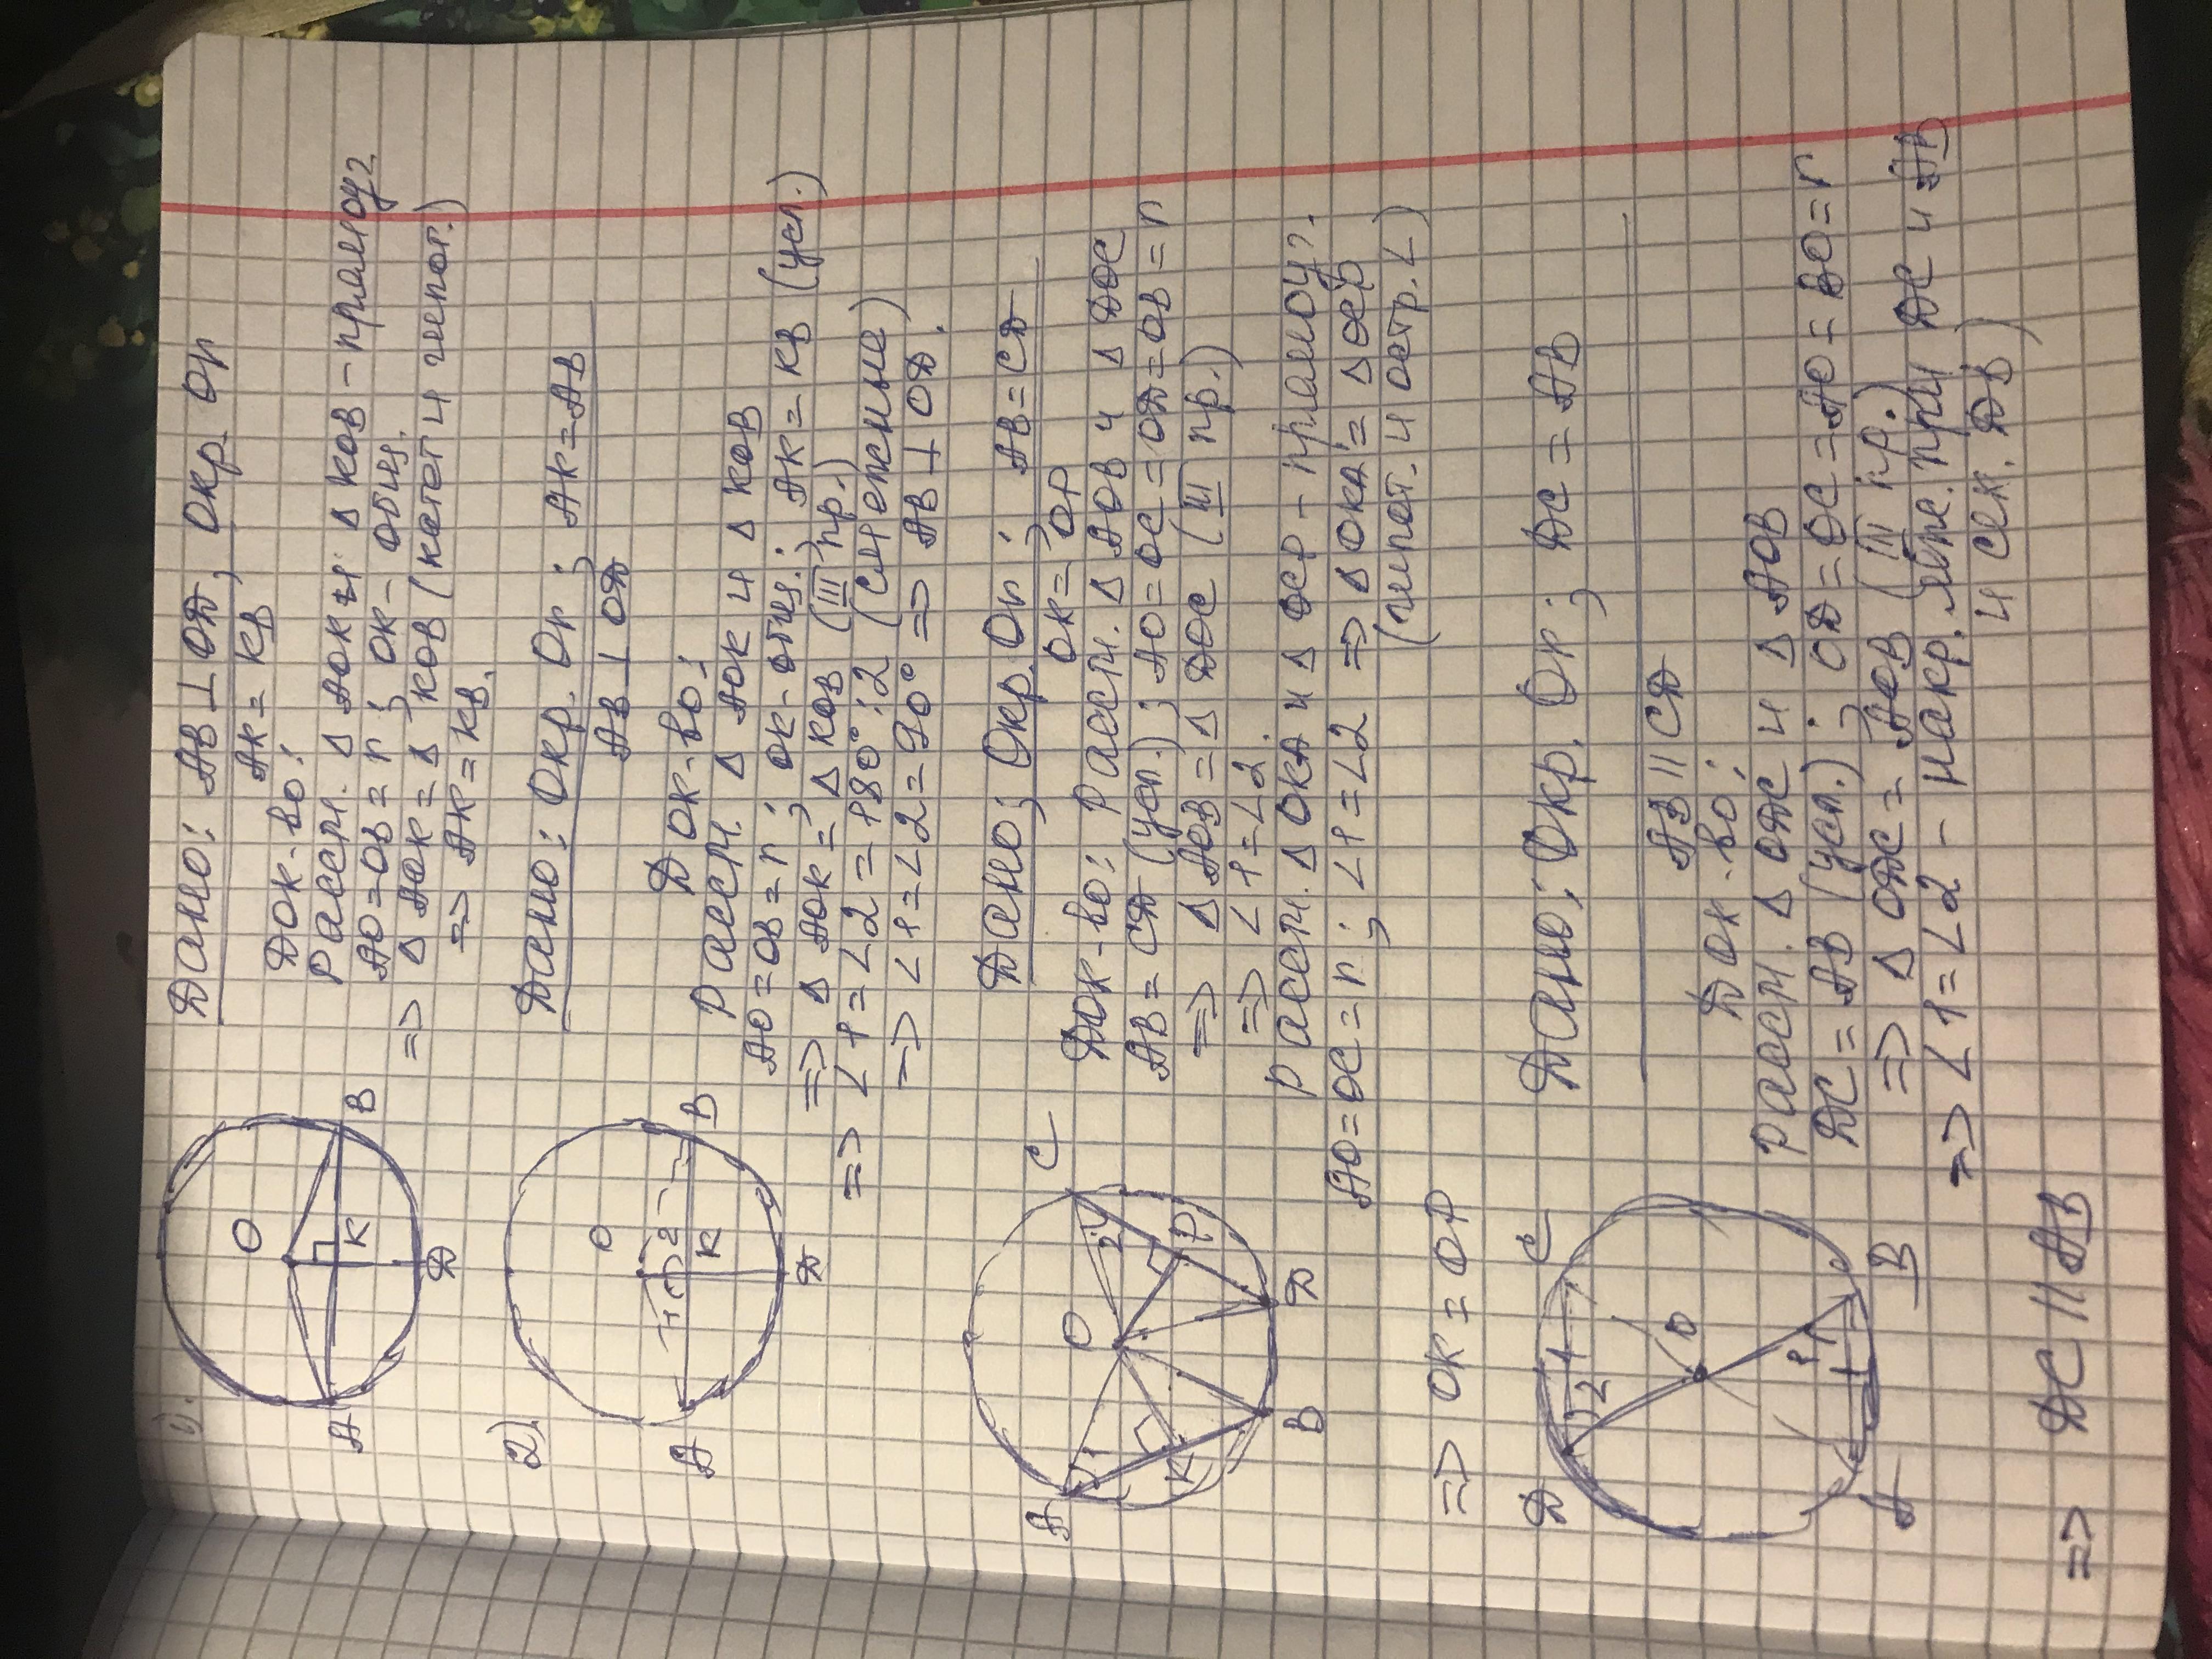 1).
Дано: АВ ⊥ ОД, Окр Or
АК = КВ
Док-во:
Рассм. Δ АОК и Δ КОВ - прямоуг
АО = ОВ = r; ОК - общ.
=> Δ АОК = Δ КОВ (катет и гипот.)
=> АК = КВ.
О
А
К
В
Д
2).
Дано: Окр. Or; АК = АВ
АВ ⊥ ОД
Док-во:
Рассм. Δ АОК и Δ КОВ
АО = ОВ = r; ОК - общ.; АК = КВ (усл.)
=> Δ АОК = Δ КОВ (III пр.)
=> ∠1 = ∠2 = 180° : 2 (смежные)
=> ∠1 = ∠2 = 90° => АВ ⊥ ОД.
О
1 2
А
К
В
Д
Дано; Окр. Or; АВ = СД
ОК = ОР
Док-во: Рассм. Δ АОВ и Δ ДОС
АВ = СД (усл.); АО = ОС = ОД = ОВ = r
=> Δ АОВ = Δ ДОС (III пр.)
=> ∠1 = ∠2.
Рассм. Δ ОКА и Δ ОСР - прямоуг.
АО = ОС = r; ∠1 = ∠2 => Δ ОКА = Δ ОСР
(гипот. и остр. ∠)
=> ОК = ОР
А
1
О
2
С
К
Р
В
Д
Дано: Окр. Or; ДС = АВ
АВ || СД
Док-во:
Рассм. Δ ОДС и Δ АОВ
ДС = АВ (усл.); ОД = ОС = АО = ВО = r
=> Δ ОДС = АОВ (III пр.)
=> ∠1 = ∠2 - накр. леж. при ДС и АВ
и сек. ДВ)
=> ДС || АВ
Д
2
С
О
1
А
В